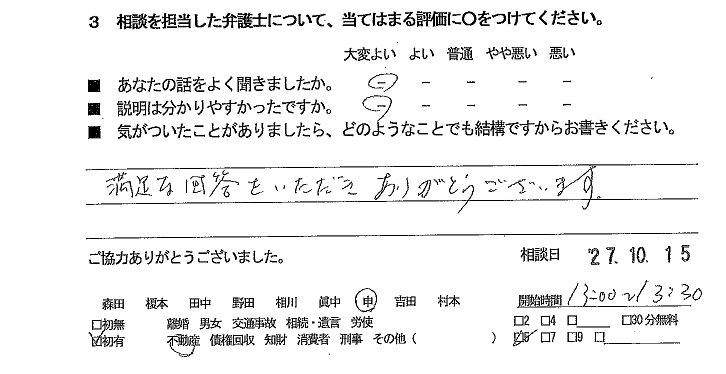 3 相談を担当した弁護士について、当てはまる評価に〇をつけてください。
大変よい よい 普通 やや悪い 悪い
■ あなたの話をよく聞きましたか。 － － － － －
■ 説明は分かりやすかったですか。 － － － － －
■ 気がついたことがありましたら、どのようなことでも結構ですからお書きください。
満足な回答をいただき ありがとうございます。
ご協力ありがとうございました。 相談日 '27.10.15
森田 榎本 田中 野田 相川 眞中 申 吉田 村本 開始時間 13:00~13:30
□初無 離婚 男女 交通事故 相続・遺言 労使 □2 □4 □ □30分無料
☑初有 不動産 債権回収 知財 消費者 刑事 その他( ) ☑5 □7 □9 □